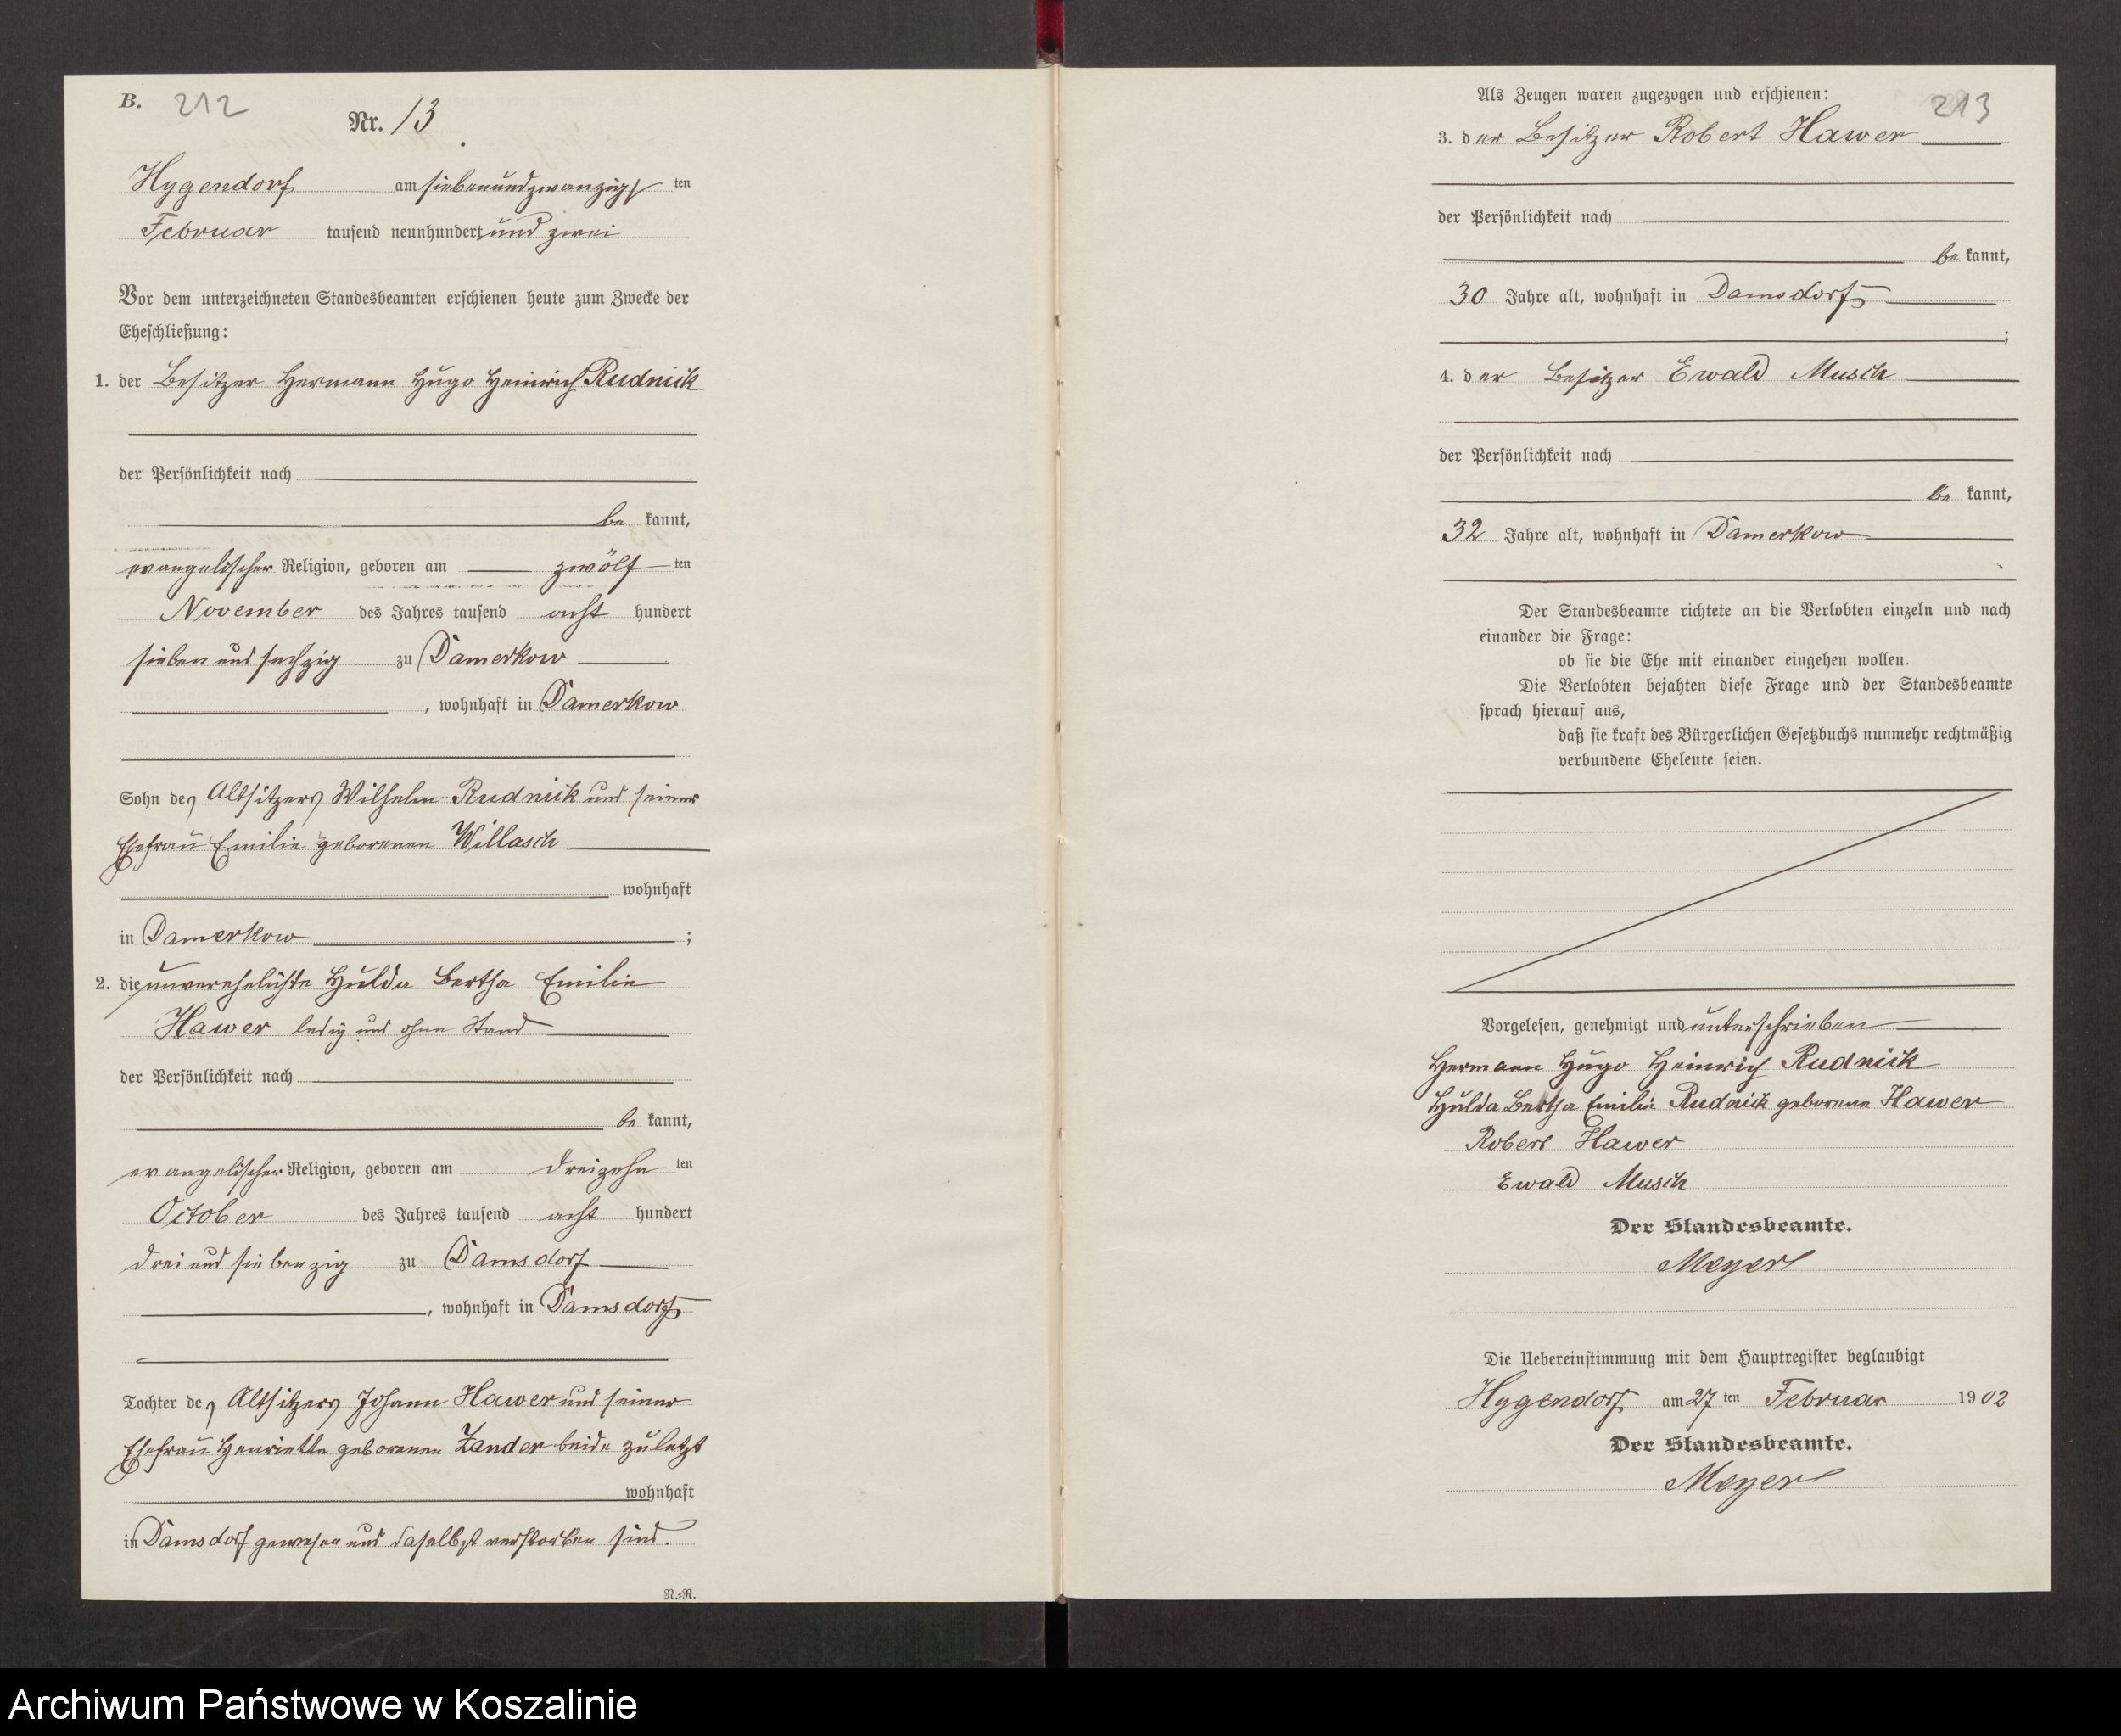 B. 212
Nr. 13
Hygendorf am siebenundzwanzigsten
Februar tausend neunhundert und zwei
Vor dem unterzeichneten Standesbeamten erschienen heute zum Zwecke der
Eheschließung:
1. der Besitzer Hermann Hugo Heinrich Rudnick
der Persönlichkeit nach
be kannt,
evangelischer Religion, geboren am zwölf ten
November des Jahres tausend acht hundert
sieben und sechzig zu Damerkow
, wohnhaft in Damerkow
Sohn des Altsitzers Wilhelm Rudnick und seiner
Ehefrau Emilie geborenen Willasch
wohnhaft
in Damerkow ;
2. die unverehelichte Hulda Bertha Emilie
Hawer ledig und ohne Stand
der Persönlichkeit nach
be kannt,
evangelischer Religion, geboren am dreizehn ten
October des Jahres tausend acht hundert
drei und siebenzig zu Damsdorf
, wohnhaft in Damsdorf
Tochter des Altsitzers Johann Hawer und seiner
Ehefrau Henriette geborenen Zander beide zuletzt
wohnhaft
in Damsdorf gewesen und daselbst verstorben sind.
N.=R.
Als Zeugen waren zugezogen und erschienen:
213
3. der Besitzer Robert Hawer
der Persönlichkeit nach
be kannt,
30 Jahre alt, wohnhaft in Damsdorf
;
4. der Besitzer Ewald Musch
der Persönlichkeit nach
be kannt,
32 Jahre alt, wohnhaft in Damerkow
Der Standesbeamte richtete an die Verlobten einzeln und nach
einander die Frage:
ob sie die Ehe mit einander eingehen wollen.
Die Verlobten bejahten diese Frage und der Standesbeamte
sprach hierauf aus,
daß sie kraft des Bürgerlichen Gesetzbuchs nunmehr rechtmäßig
verbundene Eheleute seien.
Vorgelesen, genehmigt und unterschrieben
Hermann Hugo Heinrich Rudnick
Hulda Bertha Emilie Rudnick geborene Hawer
Robert Hawer
Ewald Musch
Der Standesbeamte.
Meyer
Die Uebereinstimmung mit dem Hauptregister beglaubigt
Hygendorf am 27 ten Februar 1902
Der Standesbeamte.
Meyer
Archiwum Państwowe w Koszalinie